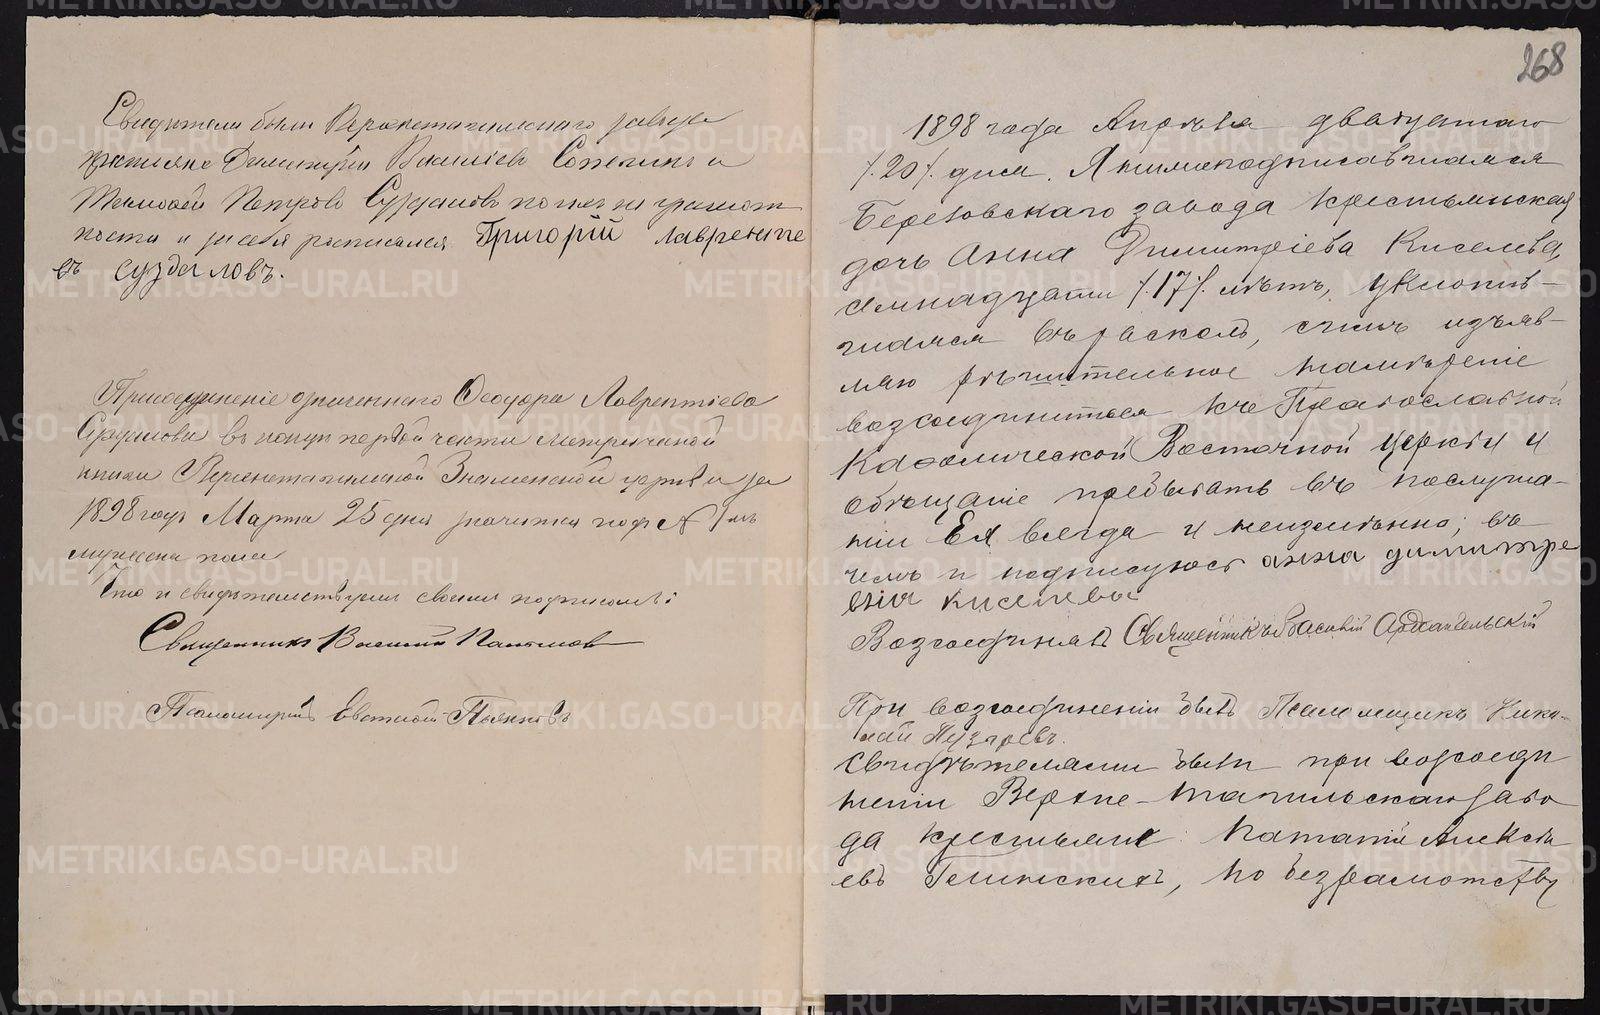 Свидѣтели были Верхнетагильскаго завода
крестьяне Димитрій Василіевъ Сопегинъ и
Тимоѳей Петровъ Суздаловъ по ихъ не грамот
ности и за себя росписался Григорій лавреньте
въ суздаловъ.
Присоединеніе означеннаго Ѳеодора Лаврентіева
Суздалова въ концѣ первой части метрической
книги Верхнетагильской Знаменской церкви за
1898 годъ Марта 25 дня значится подъ № 1мъ
мужеска пола
Что и свидѣтельствуемъ своимъ подписомъ:
Священникъ Василій
Псаломщикъ Евѳимій Пьянковъ
268
1898 года Апрѣля двадцатаго
/.20/. дня. Я нижеподписавшаяся
Березовскаго завода крестьянская
дочь Анна Димитріева Киселева,
семнадцати /.17/. лѣтъ, уклонив-
шаяся въ расколъ, симъ изъяв-
ляю рѣшительное намѣреніе
возсоединиться къ Православной
Каѳолической Восточной церкви и
обѣщаніе пребывать въ послуша-
ніи Ея всегда и неизмѣнно; въ
чемъ и подписуюсь анна димитре
вна киселева
Возсоединялъ Священникъ Василій Архангельскій
При возсоединеніи былъ Псаломщикъ Нико-
лай Пузыревъ.
Свидѣтелями были при возсоеди
неніи Верхне-тагильскаго заво
да крестьяне: Игнатій Алексѣ
евъ Гелинскихъ, по безграмотству
METRIKI.GASO-URAL.RU